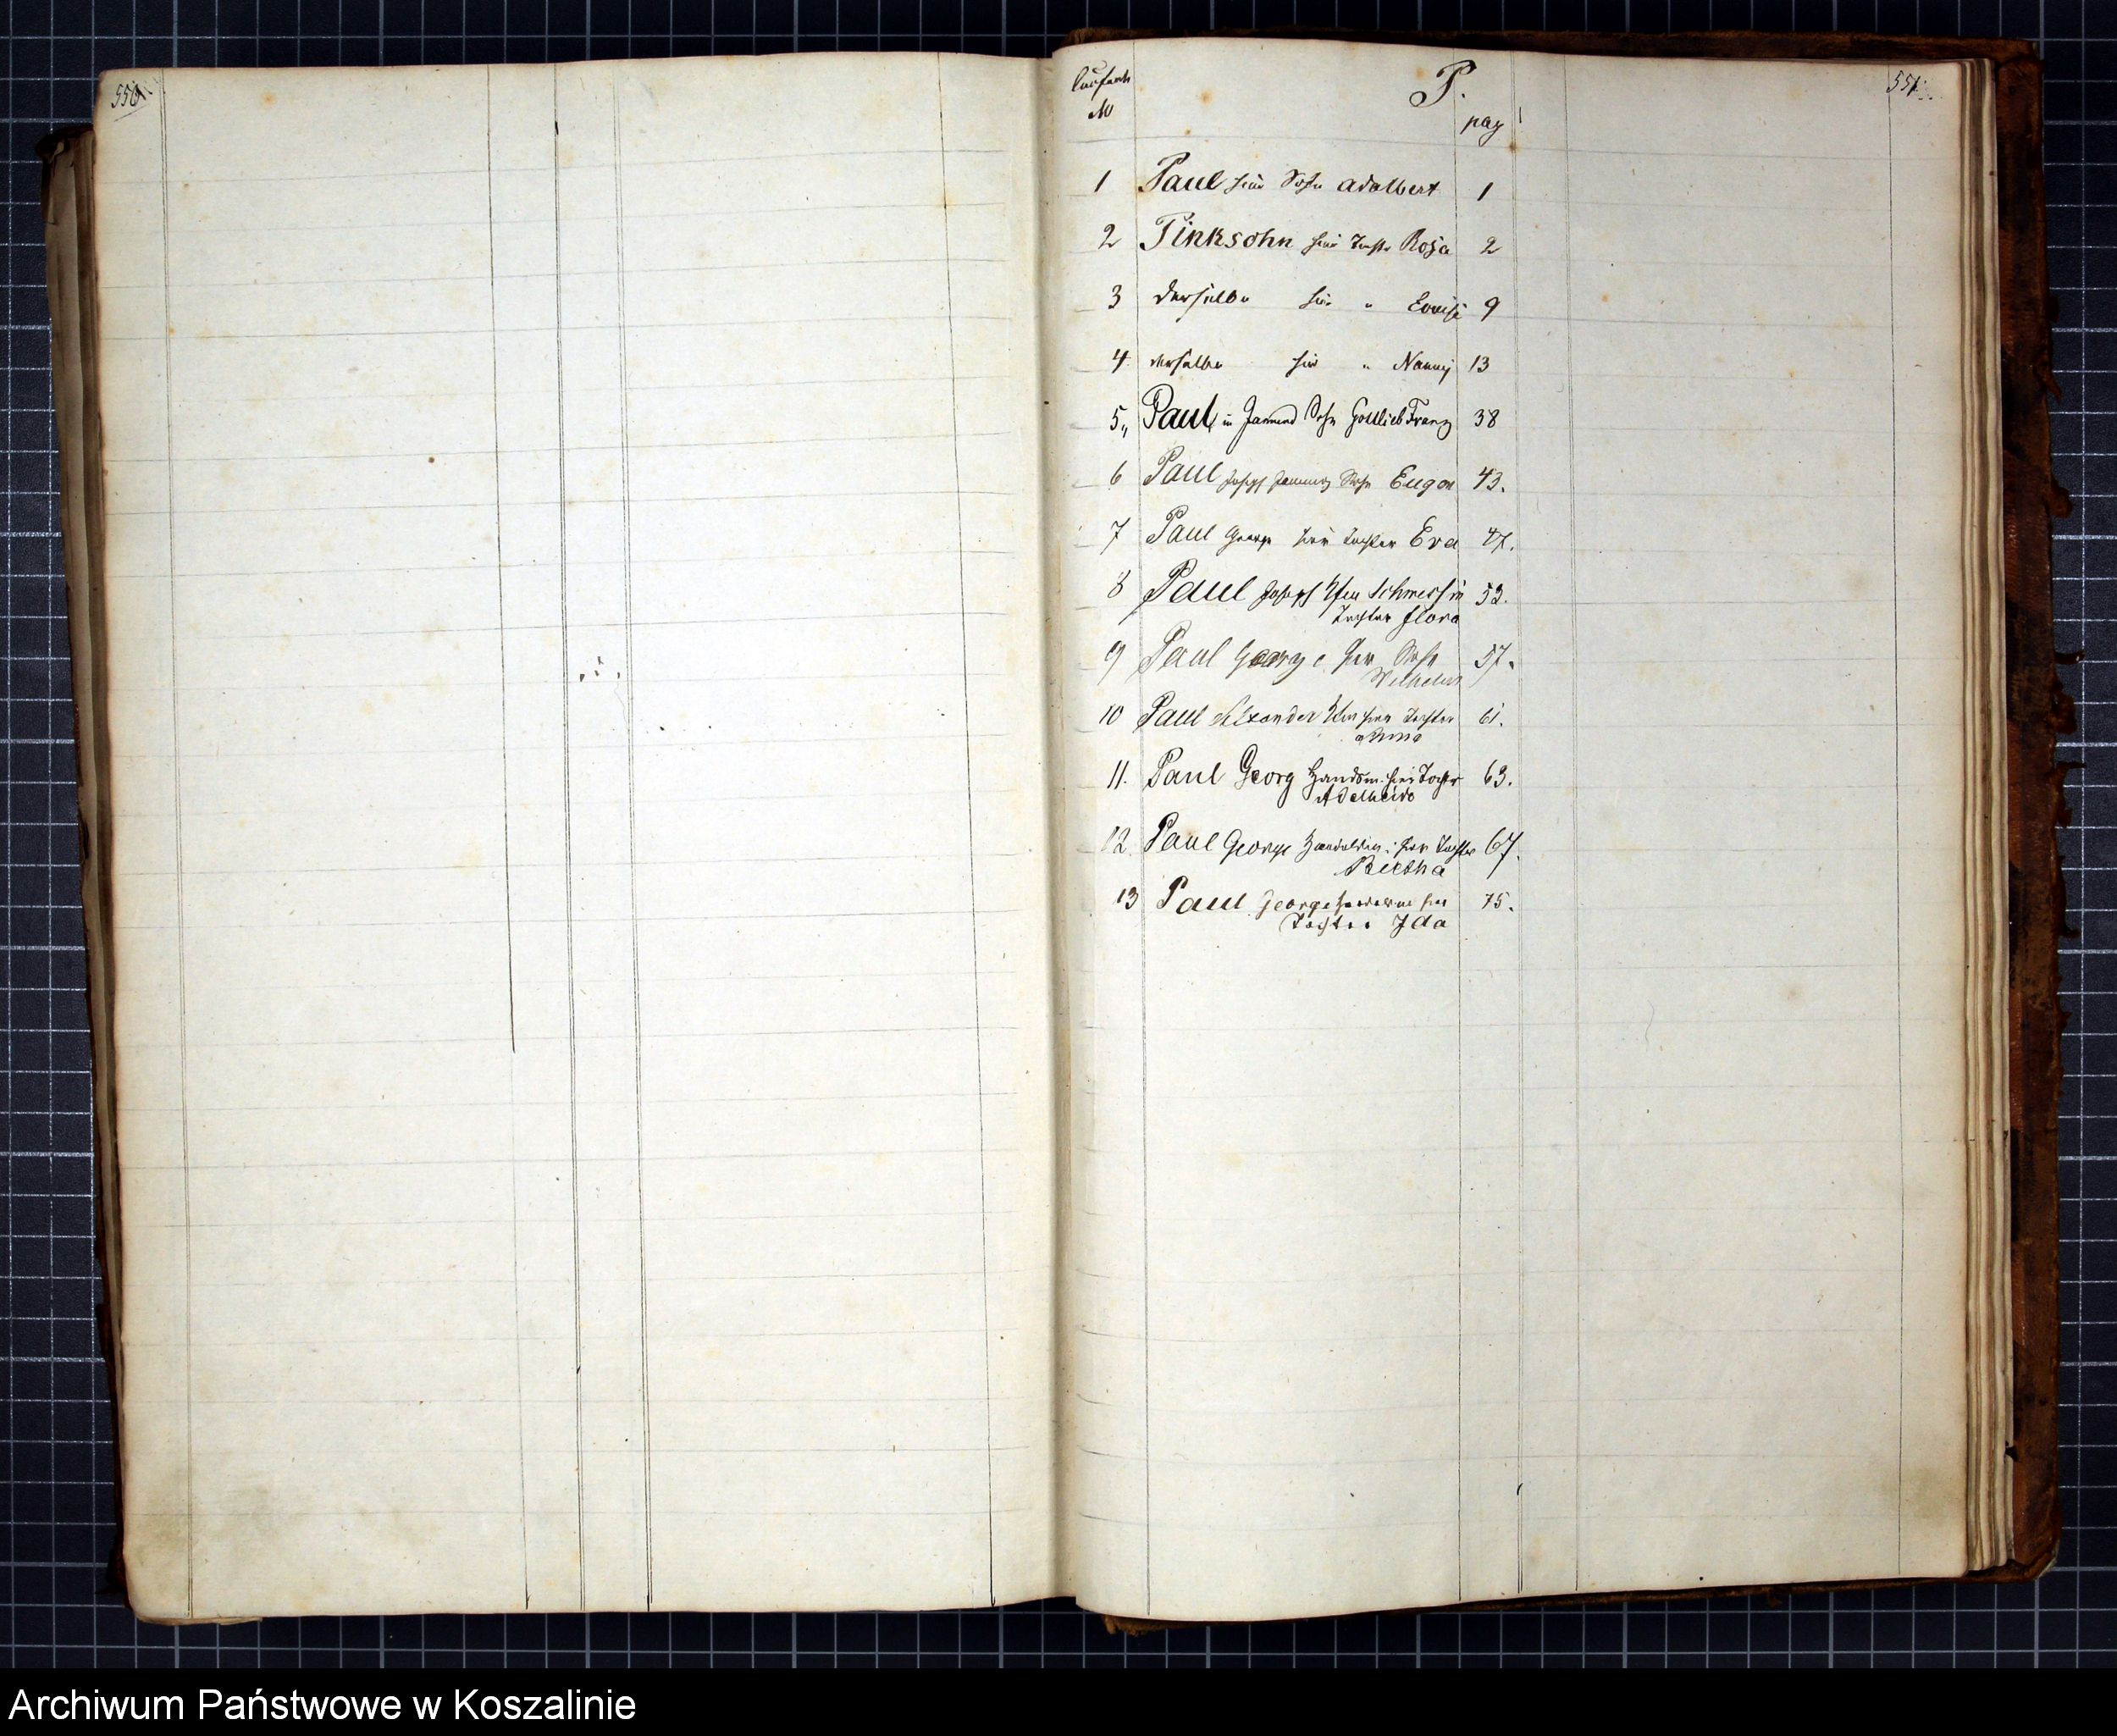 550
551
laufende
No
P.
pag
1 Paul sein Sohn Adalbert 1
2 Pinksohn seine Tochter Rosa 2
3 derselbe " Louise 9
4 derselbe " Nanny 13
5 Paul in Jamund Sohn Gottlieb Franz 38
6 Paul Joseph Sohn Eugen 43.
7 Paul George Tochter Eva 47.
8 Paul Joseph Schwessin 53.
Tochter Flora
9 Paul George Sohn 57.
Wilhelm
10 Paul Alexander Tochter 61.
Anna
11. Paul Georg Handelsm. Tochter 63.
Adelheid
12 Paul George Handelsm. Tochter 67.
Bertha
13 Paul George 75.
Tochter Ida
Archiwum Państwowe w Koszalinie